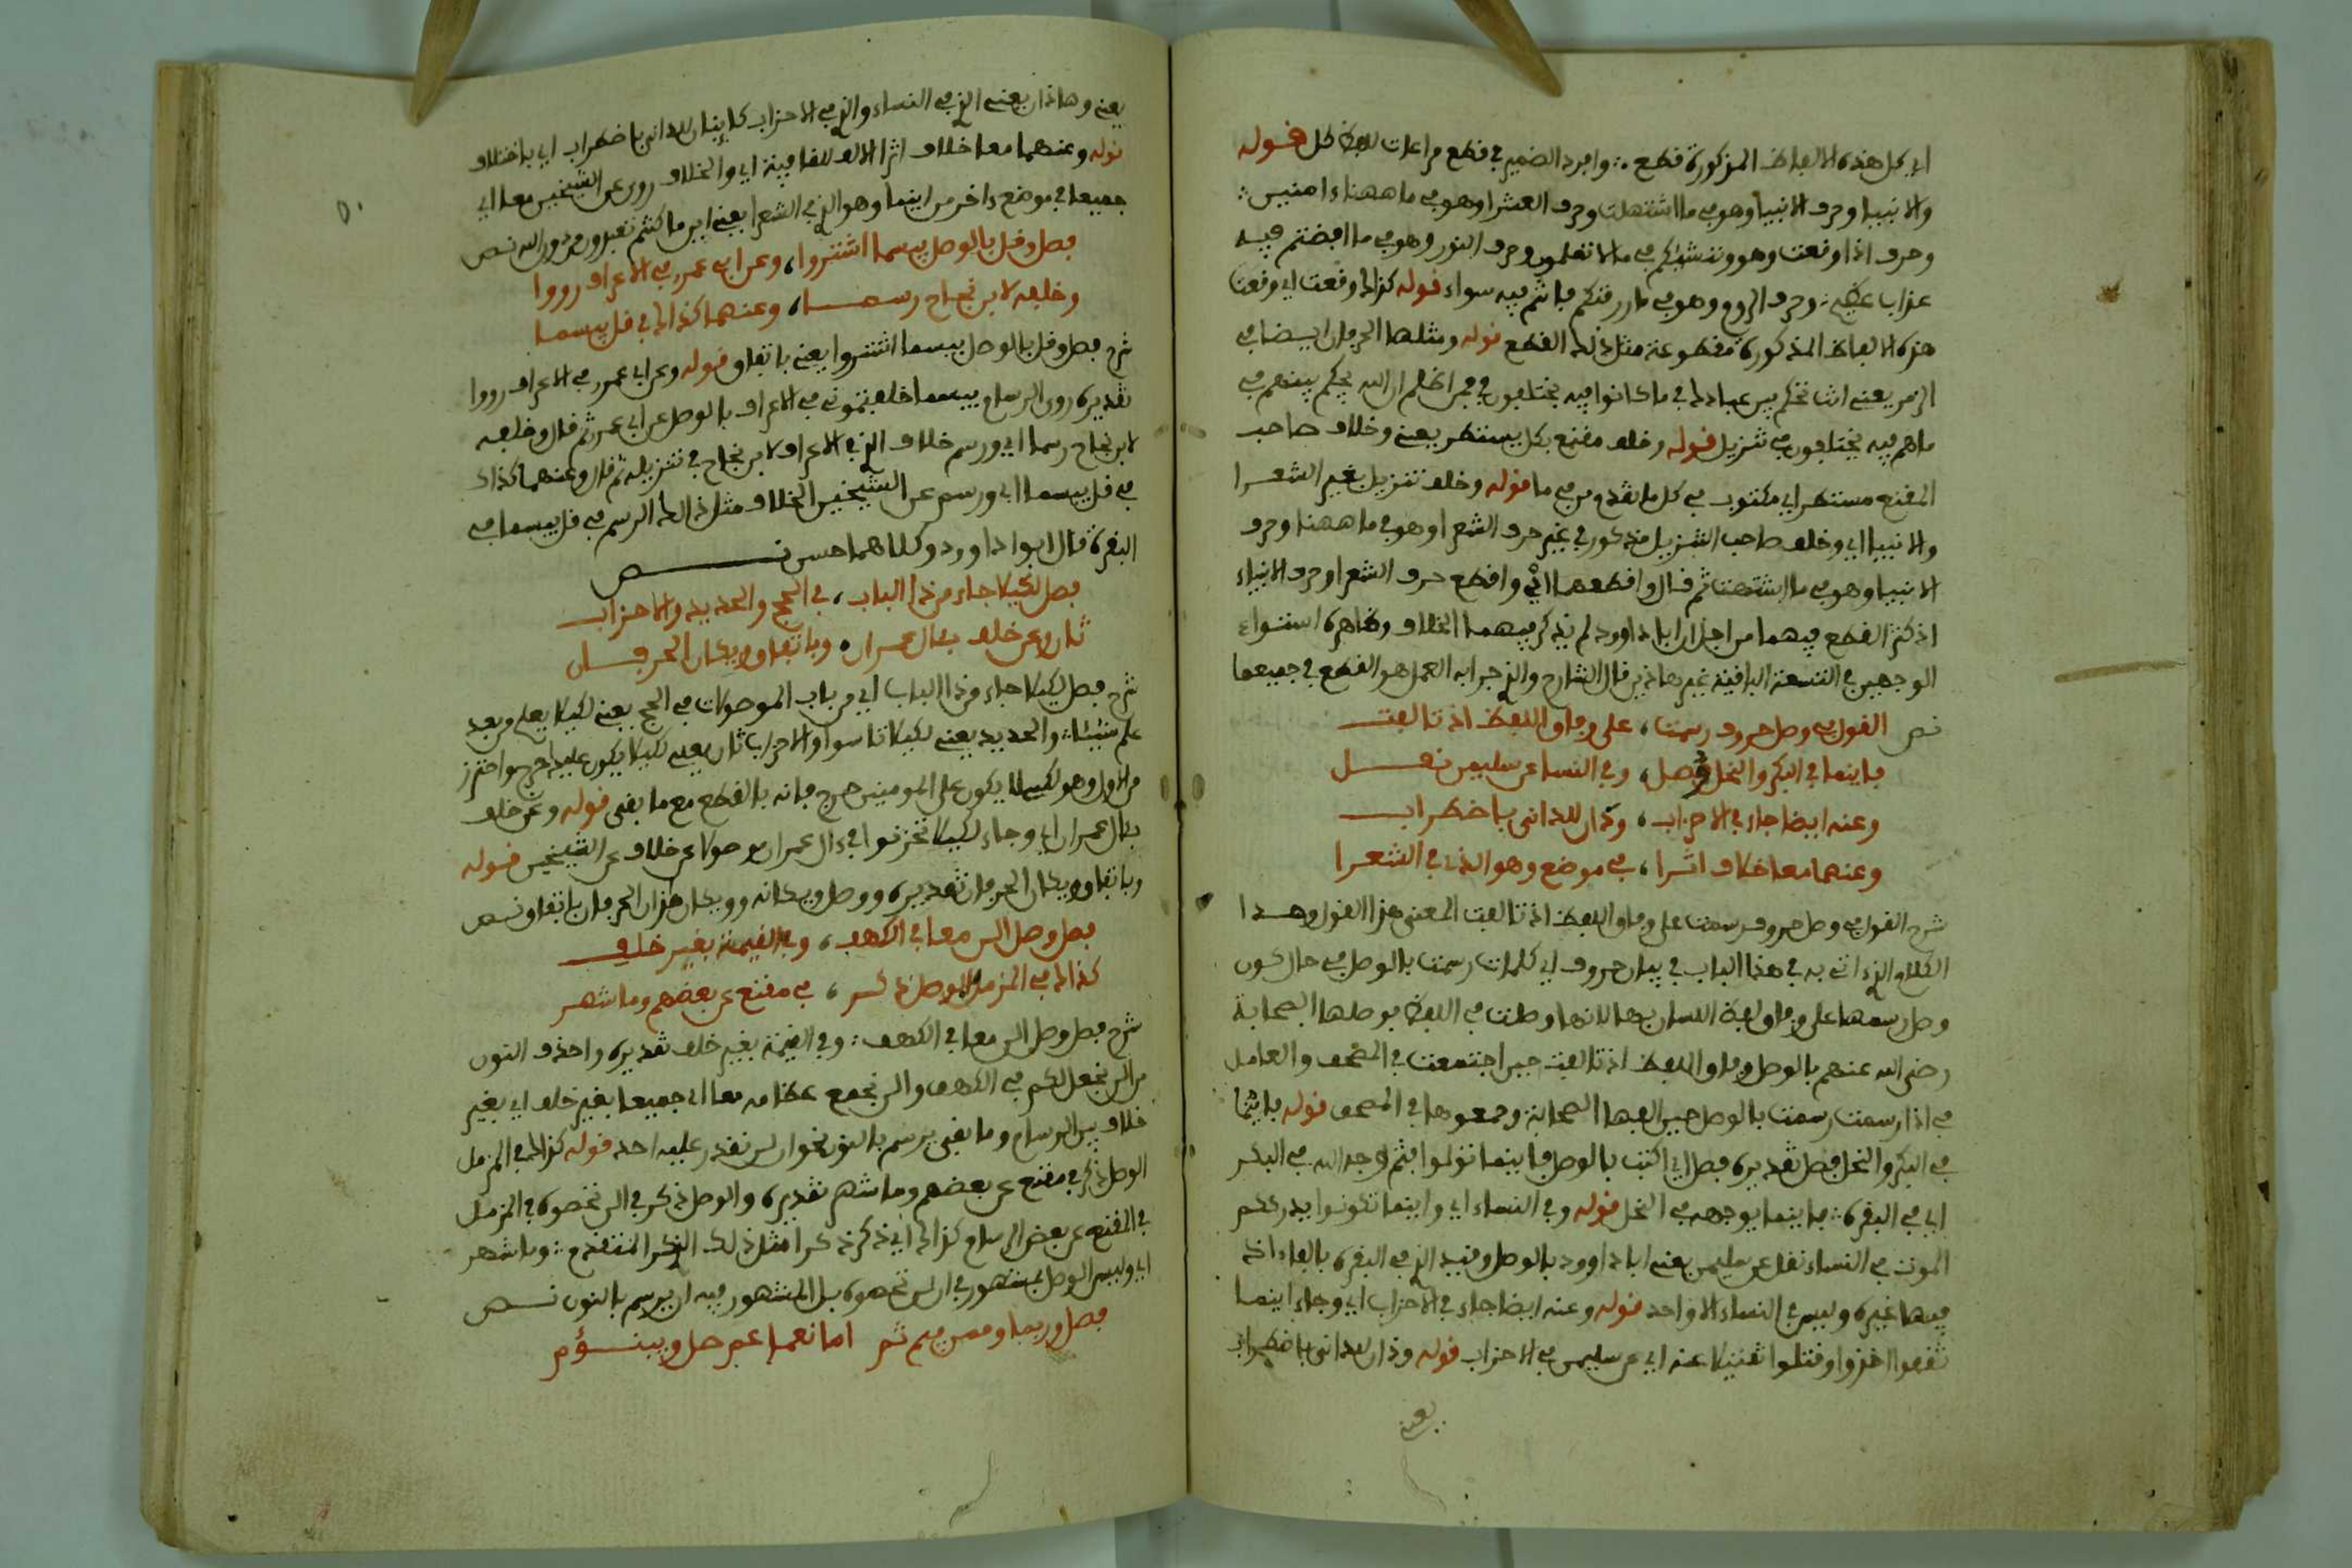 اي كل هذه الالفاظ المذكورة فطع ∴ وافرد الضمير في فطع مراعات للفظ كل فوله
والانبيا وحرف الانبيا وهو في ما اشتهت وحرف الشعرا وهو في ما ههنا ءامنين ∴
وحرف اذا وفعت وهو وننشئكم في ما لا تعلمون وحرف النور وهو في ما افضتم فيه
عذاب عظيم ∴ وحرف الروم وهو في ما رزفنكم فانتم فيه سواء فوله كذا وفعت اي وفعت
هذه الالفاظ المذكورة مفطوعة مثل ذلك الفطع فوله ومثلها الحرفان ايضا في
الزمر يعني انت تحكم بين عبادك في ما كانوا فيه يختلفون ان الله يحكم بينهم في
ما هم فيه يختلفون في تنزيل فوله وخلف مفنع بكل يستطر يعني وخلاف صاحب
المفنع مستطر اي مكتوب في كل ما تفدم من في ما فوله وخلف تنزيل بغير الشعرا
والانبيا اي وخلف صاحب التنزيل مذكور في غير حرف الشعرا وهو في ما ههنا وحرف
الانبيا وهو في ما اشتهت ثم فال وافطعهما اي وافطع حرف الشعرا وحرف الانبياء
اذ كثر الفطع فيهما من اجل ان ابا داوود لم يذكر فيهما الخلاف وظاهره استواء
الوجهين في التسعة البافية غير هاذين فال الشارح والذ جرا به العمل هو الفطع في جميعها
نص الفول في وصل حروف رسمت، على وفاو اللفظ اذ تالفت
فاينما في البكر والنحل فصل، وفي النسا عن سليمن نفل
وعنه ايضا جاء في الاحزاب، وذان للدانى باضطراب
وعنهما معا خلاف اثرا، في موضع وهو الذ في الشعرا
شرح الفول في وصل حروف رسمت على وفاو اللفظ اذ تالفت المعنى هذا الفول وهذا
الكلام الذ اتى به في هذا الباب في بيان حروف اي كلمات رسمت بالوصل في حال كون
وصل رسمها على وفاو لفظ اللسان بها لانها وصلت في اللفظ فوصلها الصحابة
رضي الله عنهم بالوصل وفاو اللفظ اذ تالفت حين اجتمعت في المصحف والعامل
في اذا رسمت رسمت بالوصل حين الفها الصحابة وجمعوها في المصحف فوله فاينما
في البكر والنحل فصل تفديره فصل اي اكتب بالوصل فاينما تولوا فثم وجه الله في البكر
اي في البفرة ∴ فاينما يوجهه في النحل فوله وفي النساء اي واينما تكونوا يدرككم
الموت في النساء نفل عن سليمن يعني ابا داوود بالوصل وفيد الذ في البفرة بالفاء اذ
فيها غيره وليس في النساء الا واحد فوله وعنه ايضا جاء في الاحزاب اي وجاء اينما
ثففوا اخذوا وفتلوا تفتيلا عنه اي عن سليمن في الاحزاب فوله وذان للدانى باضطراب
يعني
٥٠
يعني وهاذان يعني الذ في النساء والذ في الاحزاب كاينان للدانى باضطراب اي باختلاف
فوله وعنهما معا خلاف اثرا الالف للفافية اي والخلاف روى عن الشيخين معا اي
جميعا في موضع ءاخر من اينما وهو الذ في الشعرا يعني اين ما كنتم تعبدون من دون الله نص
فصل وفل بالوصل بيسما اشتروا، وعن ابي عمر في الاعراف رووا
وخلفه لابن نجاح رسما، وعنهما كذاك في فل بيسما
شرح فصل وفل بالوصل بيسما اشتروا يعني باتفاو فوله وعن ابي عمر في الاعراف رووا
تفديره روى الرسام بيسما خلفتمونى في الاعراف بالوصل عن ابي عمر ثم فال وخلفه
لابن نجاح رسما اي ورسم خلاف الذ في الاعراف لابن نجاح في تنزيله ثم فال وعنهما كذاك
في فل بيسما اي ورسم عن الشيخين الخلاف مثل ذالك الرسم في فل بيسما في
البفرة فال ابوا داوود وكلاهما حسن نص
فصل لكيلا جاء من ذا الباب، في الحج والحديد والاحزاب
ثان وعن خلف بئال عمران، وباتفاو ويكان الحرفان
شرح فصل لكيلا جاء من ذا الباب اي من باب الموصولات في الحج يعني لكيلا يعلم من بعد
علم شيئا ∴ والحديد يعني لكيلا تاسوا والاحزاب ثان يعني لكيلا يكون عليك حرج واحترز
من الاول وهو لكيلا يكون على المومنين حرج فانه بالفطع مع ما بفى فوله وعن خلف
بئال عمران اي وجاء لكيلا تحزنوا في ءال عمران موصولا عن خلاف عن الشيخين فوله
وباتفاو ويكان الحرفان تفديره ووصل ويكانه وويكان هذان الحرفان باتفاو نص
فصل وصل الن معا في الكهف، وفي الفيمة بغير خلف
كذاك في المزمل الوصل ذكر، في مفنع عن بعضهم وما شهر
شرح فصل وصل الن معا في الكهف ∴ وفي الفيمة بغير خلف تفديره واحذف النون
من الن نجعل لكم في الكهف والن نجمع عظامه معا اي جميعا بغير خلف اي بغير
خلاف بين الرسام وما بفى يرسم بالنون نحو ان لن نفدر عليه احد فوله كذاك في المزمل
الوصل ذكر في مفنع عن بعضهم وما شهر تفديره والوصل ذكر في الن تحصوه في المزمل
في المفنع عن بعض الرسام كذاك اي ذكر ذكرا مثل ذلك الذكر المتفدم ∴ وما شهر
اي وليس الوصل بمشهور في ان لن تحصوه بل المشهور فيه ان يرسم بالنون نص
فصل وربما وممن فيم ثم اما نعما عم صل ويبنؤم